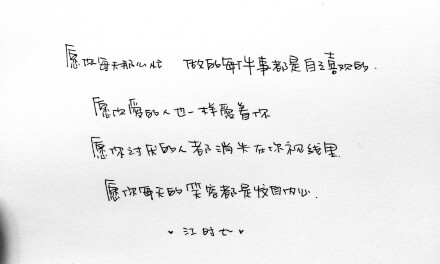 愿你每天都心忙 做的每件事都是自己喜欢的.
愿你爱的人也一样爱着你
愿你讨厌的人都消失在你视线里.
愿你每天的笑容都是发自内心.
江时七